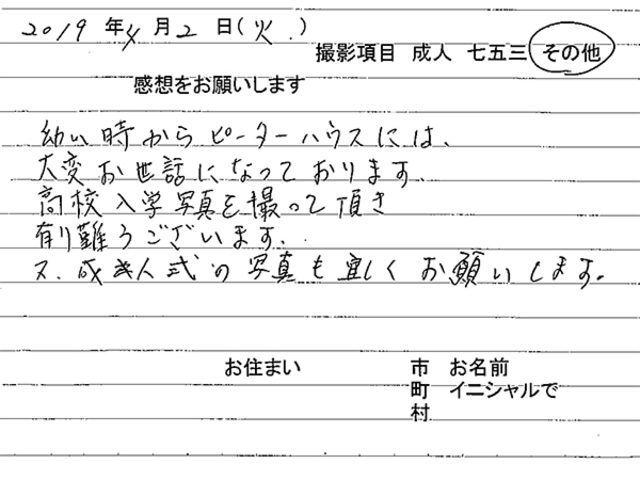 2019年4月2日(火)
撮影項目 成人 七五三 その他
感想をお願いします
幼い時からピーターハウスには、
大変お世話になっております。
高校入学写真を撮って頂き
有り難うございます。
又、成人式の写真も宜しくお願いします。
お住まい 市 お名前
町 イニシャルで
村